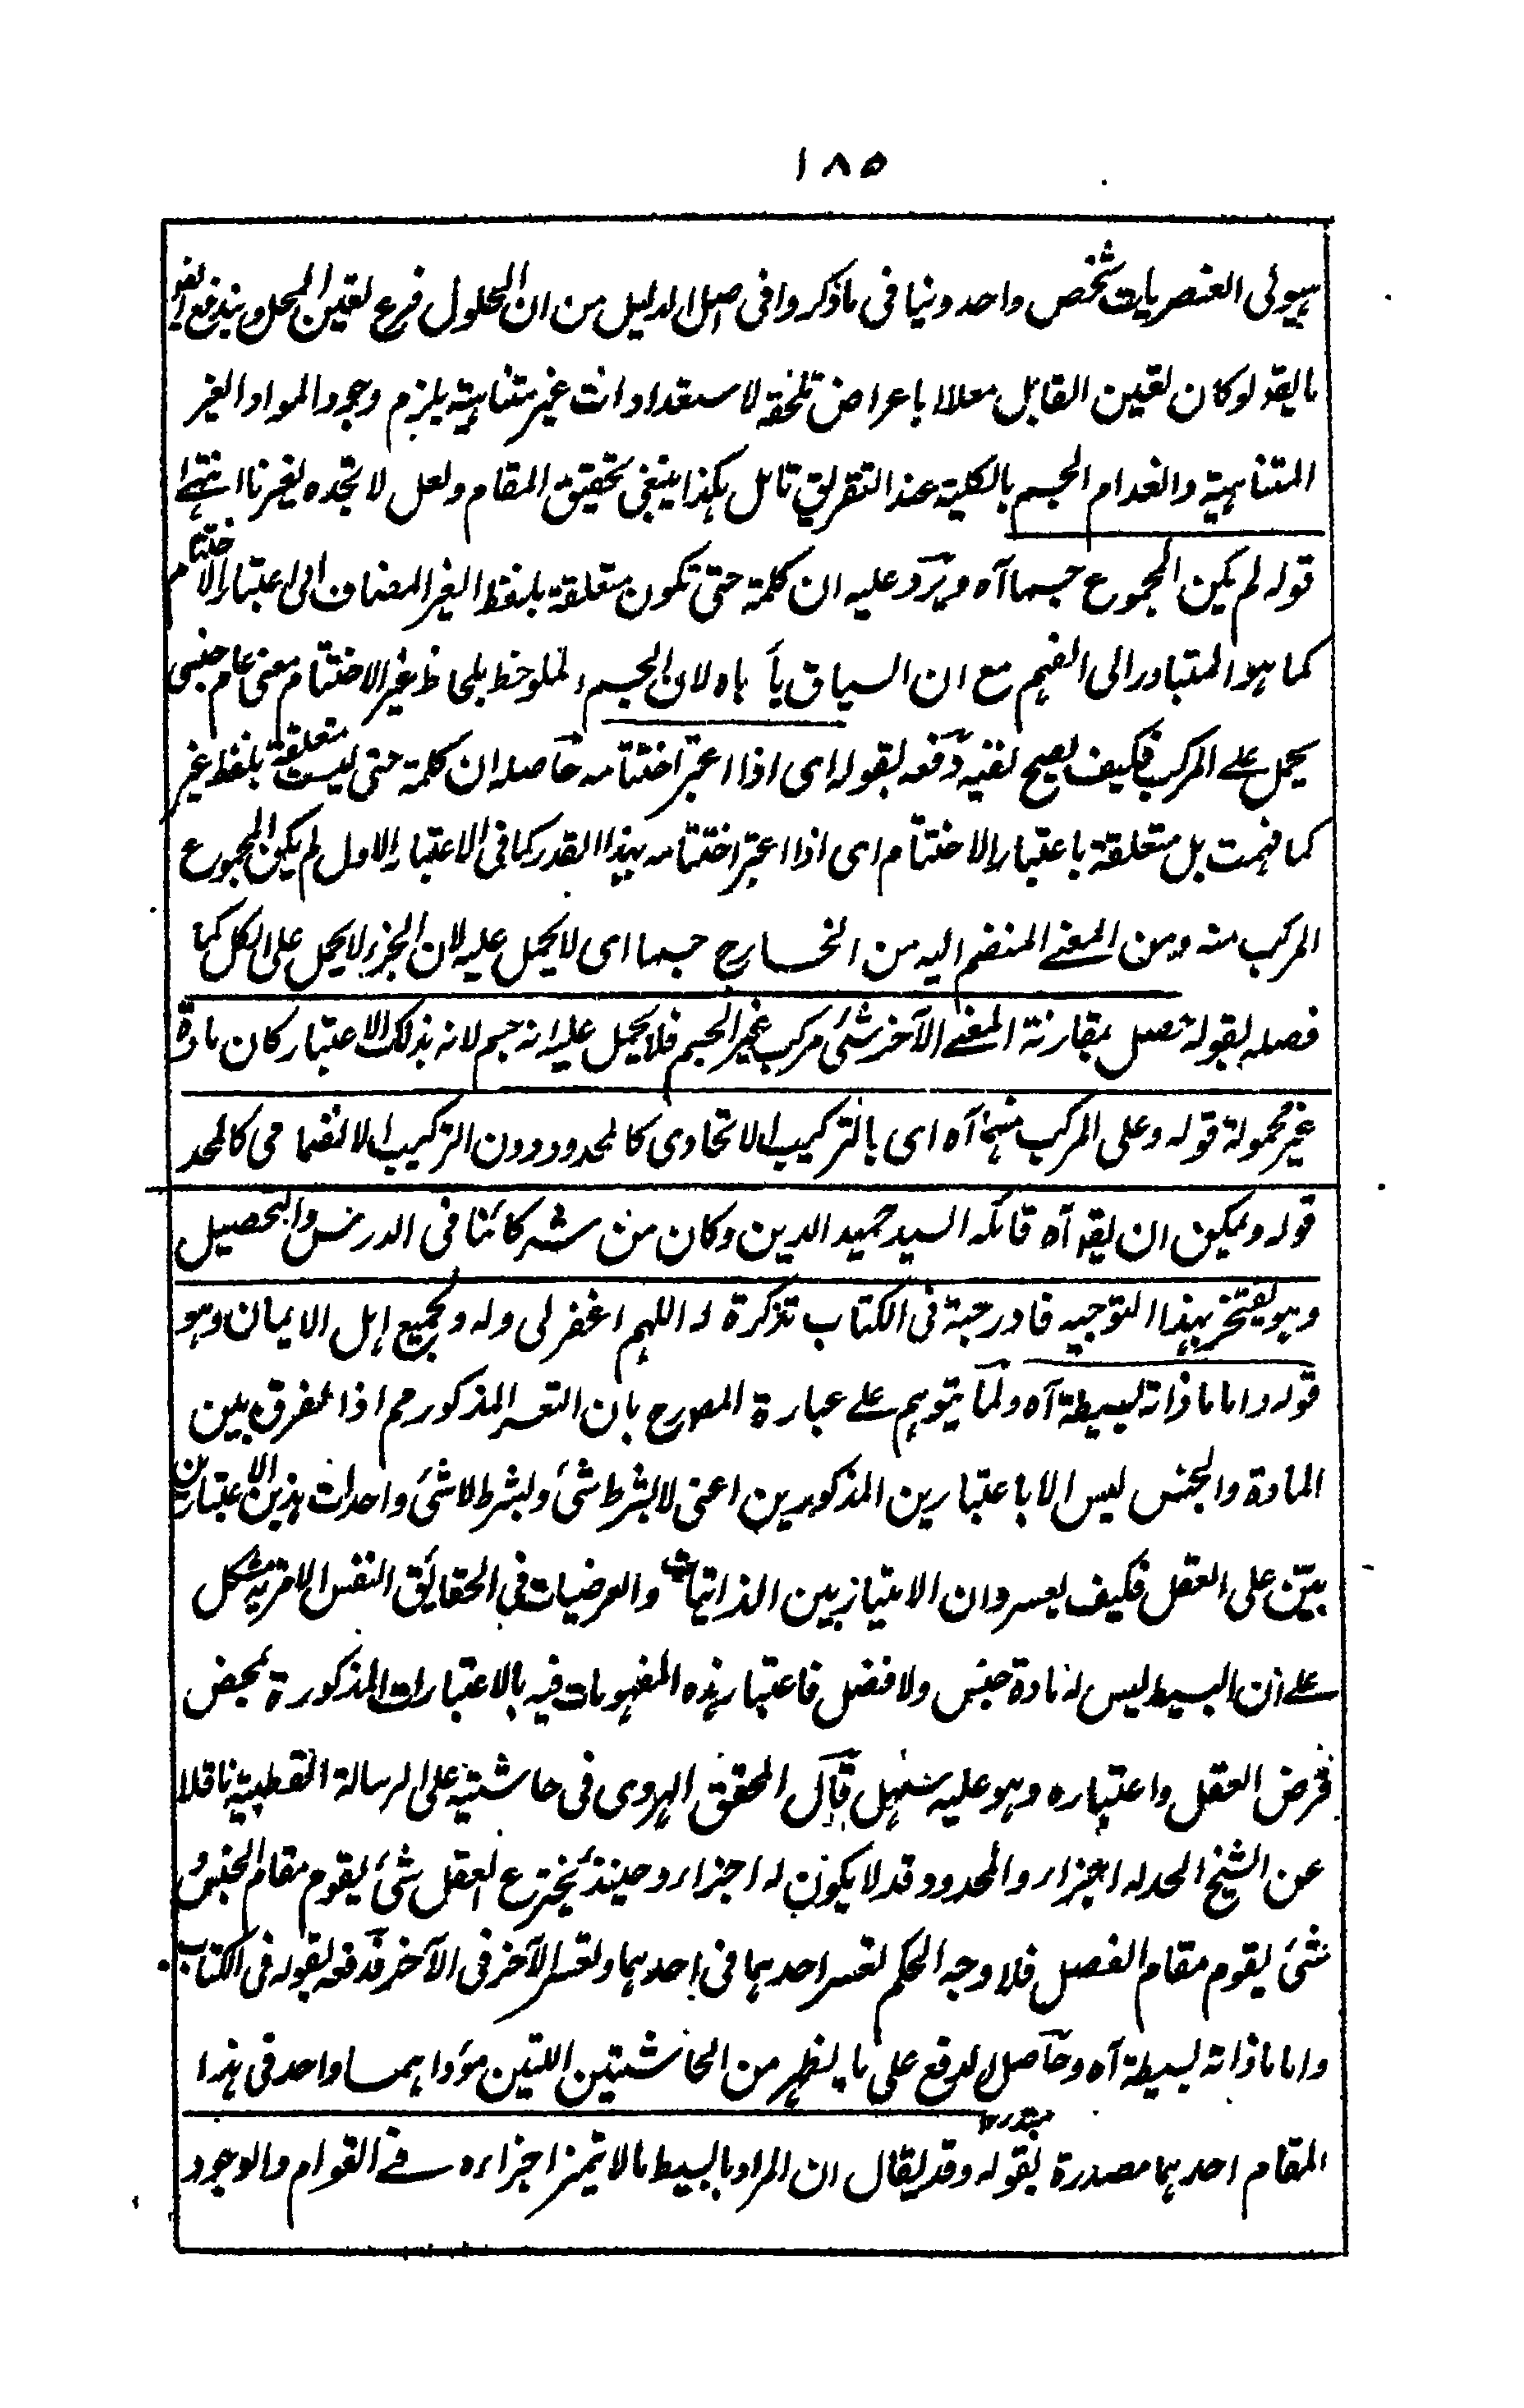 ١٨٥
ہیولی العنصریات شخص واحد وینافی ماذکروا فی اصل الدلیل من ان الحلول فرع لتعین المحل ویندفع ایضو
مایقو لوکان تعین القابل معللا باعراض تلحقہ لاستعدادات غیر متناہیۃ یلزم وجود المواد الغیر
المتناہیۃ وانعدام الجسم بالکلیۃ عند التفریق تامل ہکذا ینبغی تحقیق المقام ولعل لا تجدہ لغیرنا انتہی
قولہ لم یکن المجموع جسما آہ ویرد علیہ ان کلمۃ حتی تکون متعلقۃ بلفظ الغیر المضاف الی اعتبار الاختتام
کما ہو المتبادر الی الفہم مع ان السیاق یأباہ لان الجسم الملوحظ بلحاظ غیر الاختتام معنی عام جنسی
یحمل علی المرکب فکیف یصح نفیہ دفعہ بقولہ ای اذا اعتبر اختتامہ حاصلہ ان کلمۃ حتی لیست متعلقۃ بلفظ غیر
کما فہمت بل متعلقۃ باعتبار الاختتام ای اذا اعتبر اختتامہ بہذا القدر کما فی الاعتبار الاول لم یکن المجموع
المرکب منہ ومن المعنے المنضم الیہ من الخارج جسما ای لایحمل علیہ لان الجزء لایحمل علی الکل کما
فصلہ بقولہ حصل بمقارنۃ المعنے الآخر شئ مرکب غیر الجسم فلا یحمل علیہ انہ جسم لانہ بذلک الاعتبار کان مادۃ
غیر محمولۃ قولہ وعلی المرکب منہما آہ ای بالترکیب الاتحادی کالمحدود دون الترکیب الانضمامی کالحد
قولہ ویمکن ان یقو آہ قائلہ السید حمید الدین وکان من شرکائنا فی الدرس والتحصیل
وہو یفتخر بہذا التوجیہ فادرجتہ فی الکتاب تذکرۃ لہ اللہم اغفر لی ولہ ولجمیع اہل الایمان وہو
قولہ واما ماذاتہ بسیطۃ آہ ولما یتوہم علے عبارۃ المصرح بان التعسر المذکور مم اذا لفرق بین
المادۃ والجنس لیس الا باعتبارین المذکورین اعنی لابشرط شئ وبشرط لاشئ واحداث ہذین الاعتبارین
بیّن علی العقل فکیف یعسر وان الامتیاز بین الذاتیات والعرضیات فی الحقایق النفس الامریۃ مشکل
علے ان البسیط لیس لہ مادۃ جنس ولا فصل فاعتبار ہذہ المفہومات فیہ بالاعتبارات المذکورۃ بمحض
فرض العقل واعتبارہ وہو علیہ سہل قال المحقق الہروی فی حاشیتہ علی الرسالۃ القطبیۃ ناقلا
عن الشیخ الحد لہ اجزاء والمحدود قد لایکون لہ اجزاء وحینئذ یخترع العقل شئ یقوم مقام الجنس و
شئ یقوم مقام الفصل فلا وجہ الحکم لعسر احدہما فی احدہما ولعسر الآخر فی الآخر فدفعہ بقولہ فی الکتاب
واما ماذاتہ بسیطۃ آہ وحاصل الدفع علی ما یظہر من الحاشیتین اللتین مؤداہما واحد فی ہذا
المقام احدہما مصدرۃ بقولہ وقد یقال ان المراد بالبسیط مالا تمیز اجزاءہ فے القوام والوجود